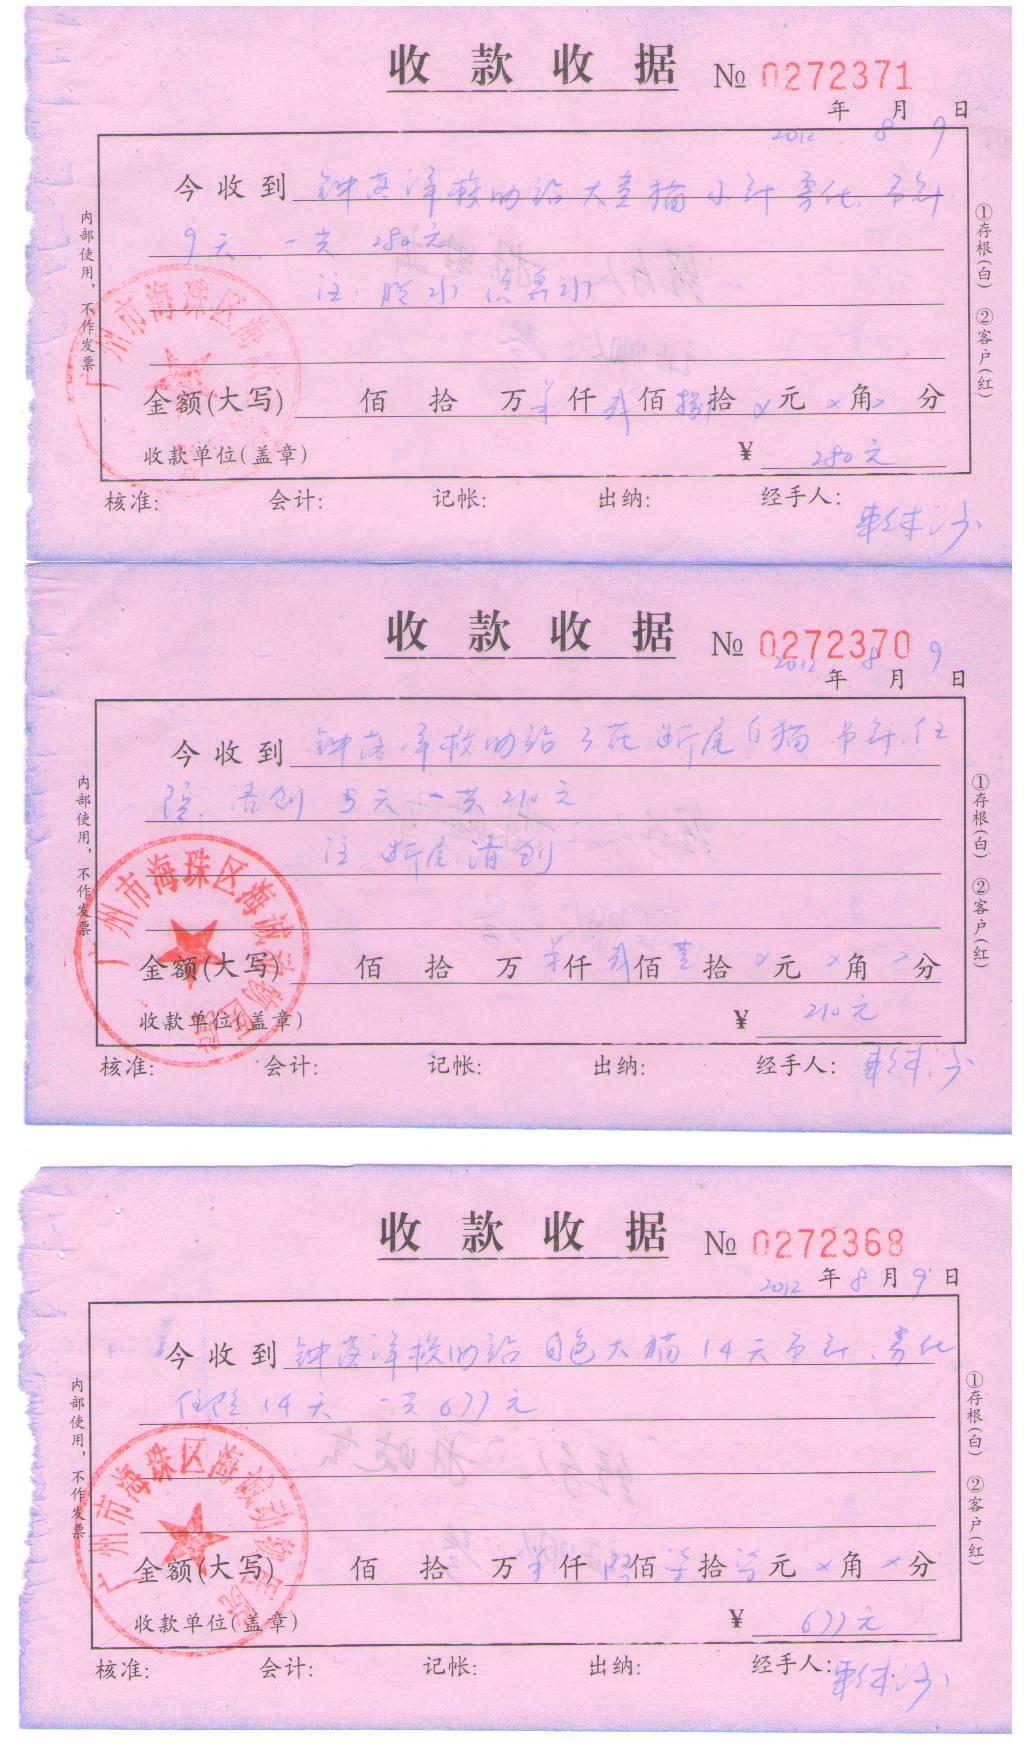 收款收据 № 0272371
年 月 日
2012 8 9
今收到 钟落潭救助站大黄猫小针寄住.吊针
9天. 一共 280元
注: 脓水 流鼻水
金额(大写) 佰 拾 万 仟 贰佰 捌拾 元 × 角 × 分
收款单位(盖章) ¥ 280元
核准: 会计: 记帐: 出纳: 经手人:
内部使用,不作发票
①存根(白) ②客户(红)
广州市海珠区海
收款收据 № 0272370
2012 8 9
年 月 日
今收到 钟落潭救助站三花 断尾白猫 吊针.住
院.清创 5天 一共210元
注: 断尾清创
金额(大写) 佰 拾 万 仟 贰佰 壹拾 × 元 × 角 × 分
收款单位(盖章) ¥ 210元
核准: 会计: 记帐: 出纳: 经手人:
内部使用,不作发票
①存根(白) ②客户(红)
广州市海珠区海诚动物医院
收款收据 № 0272368
2012 年 8 月 9 日
今收到 钟落潭救助站 白色大猫14天吊针.寄住
住院14天 一共677元
金额(大写) 佰 拾 万 仟 陆佰 柒拾 柒元 × 角 × 分
收款单位(盖章) ¥ 677元
核准: 会计: 记帐: 出纳: 经手人:
内部使用,不作发票
①存根(白) ②客户(红)
广州市海珠区海诚动物医院